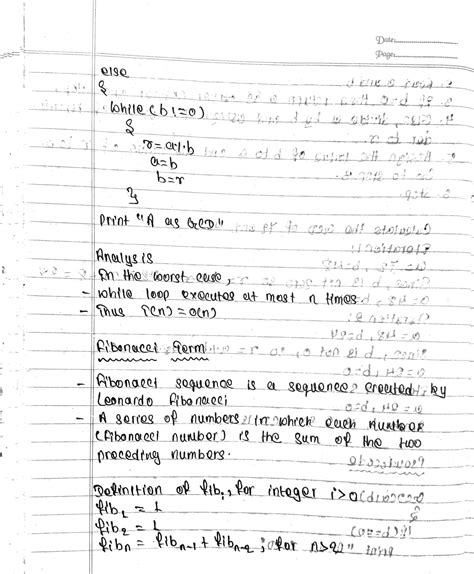 Date:
Page:
else
{
while (b!=0)
{
r=a%b
a=b
b=r
}
Print "A as GCD."
Analysis
In the worst case,
- while loop executes at most n times
- Thus T(n) = O(n)
Fibonacci Term
- Fibonacci sequence is a sequence created by
Leonardo Fibonacci
- A series of numbers in which each number
(Fibonacci number) is the sum of the two
preceding numbers.
Definition of fibi, for integer i>0
fib1 = 1
fib2 = 1
fibn = fibn-1 + fibn-2; for n>2